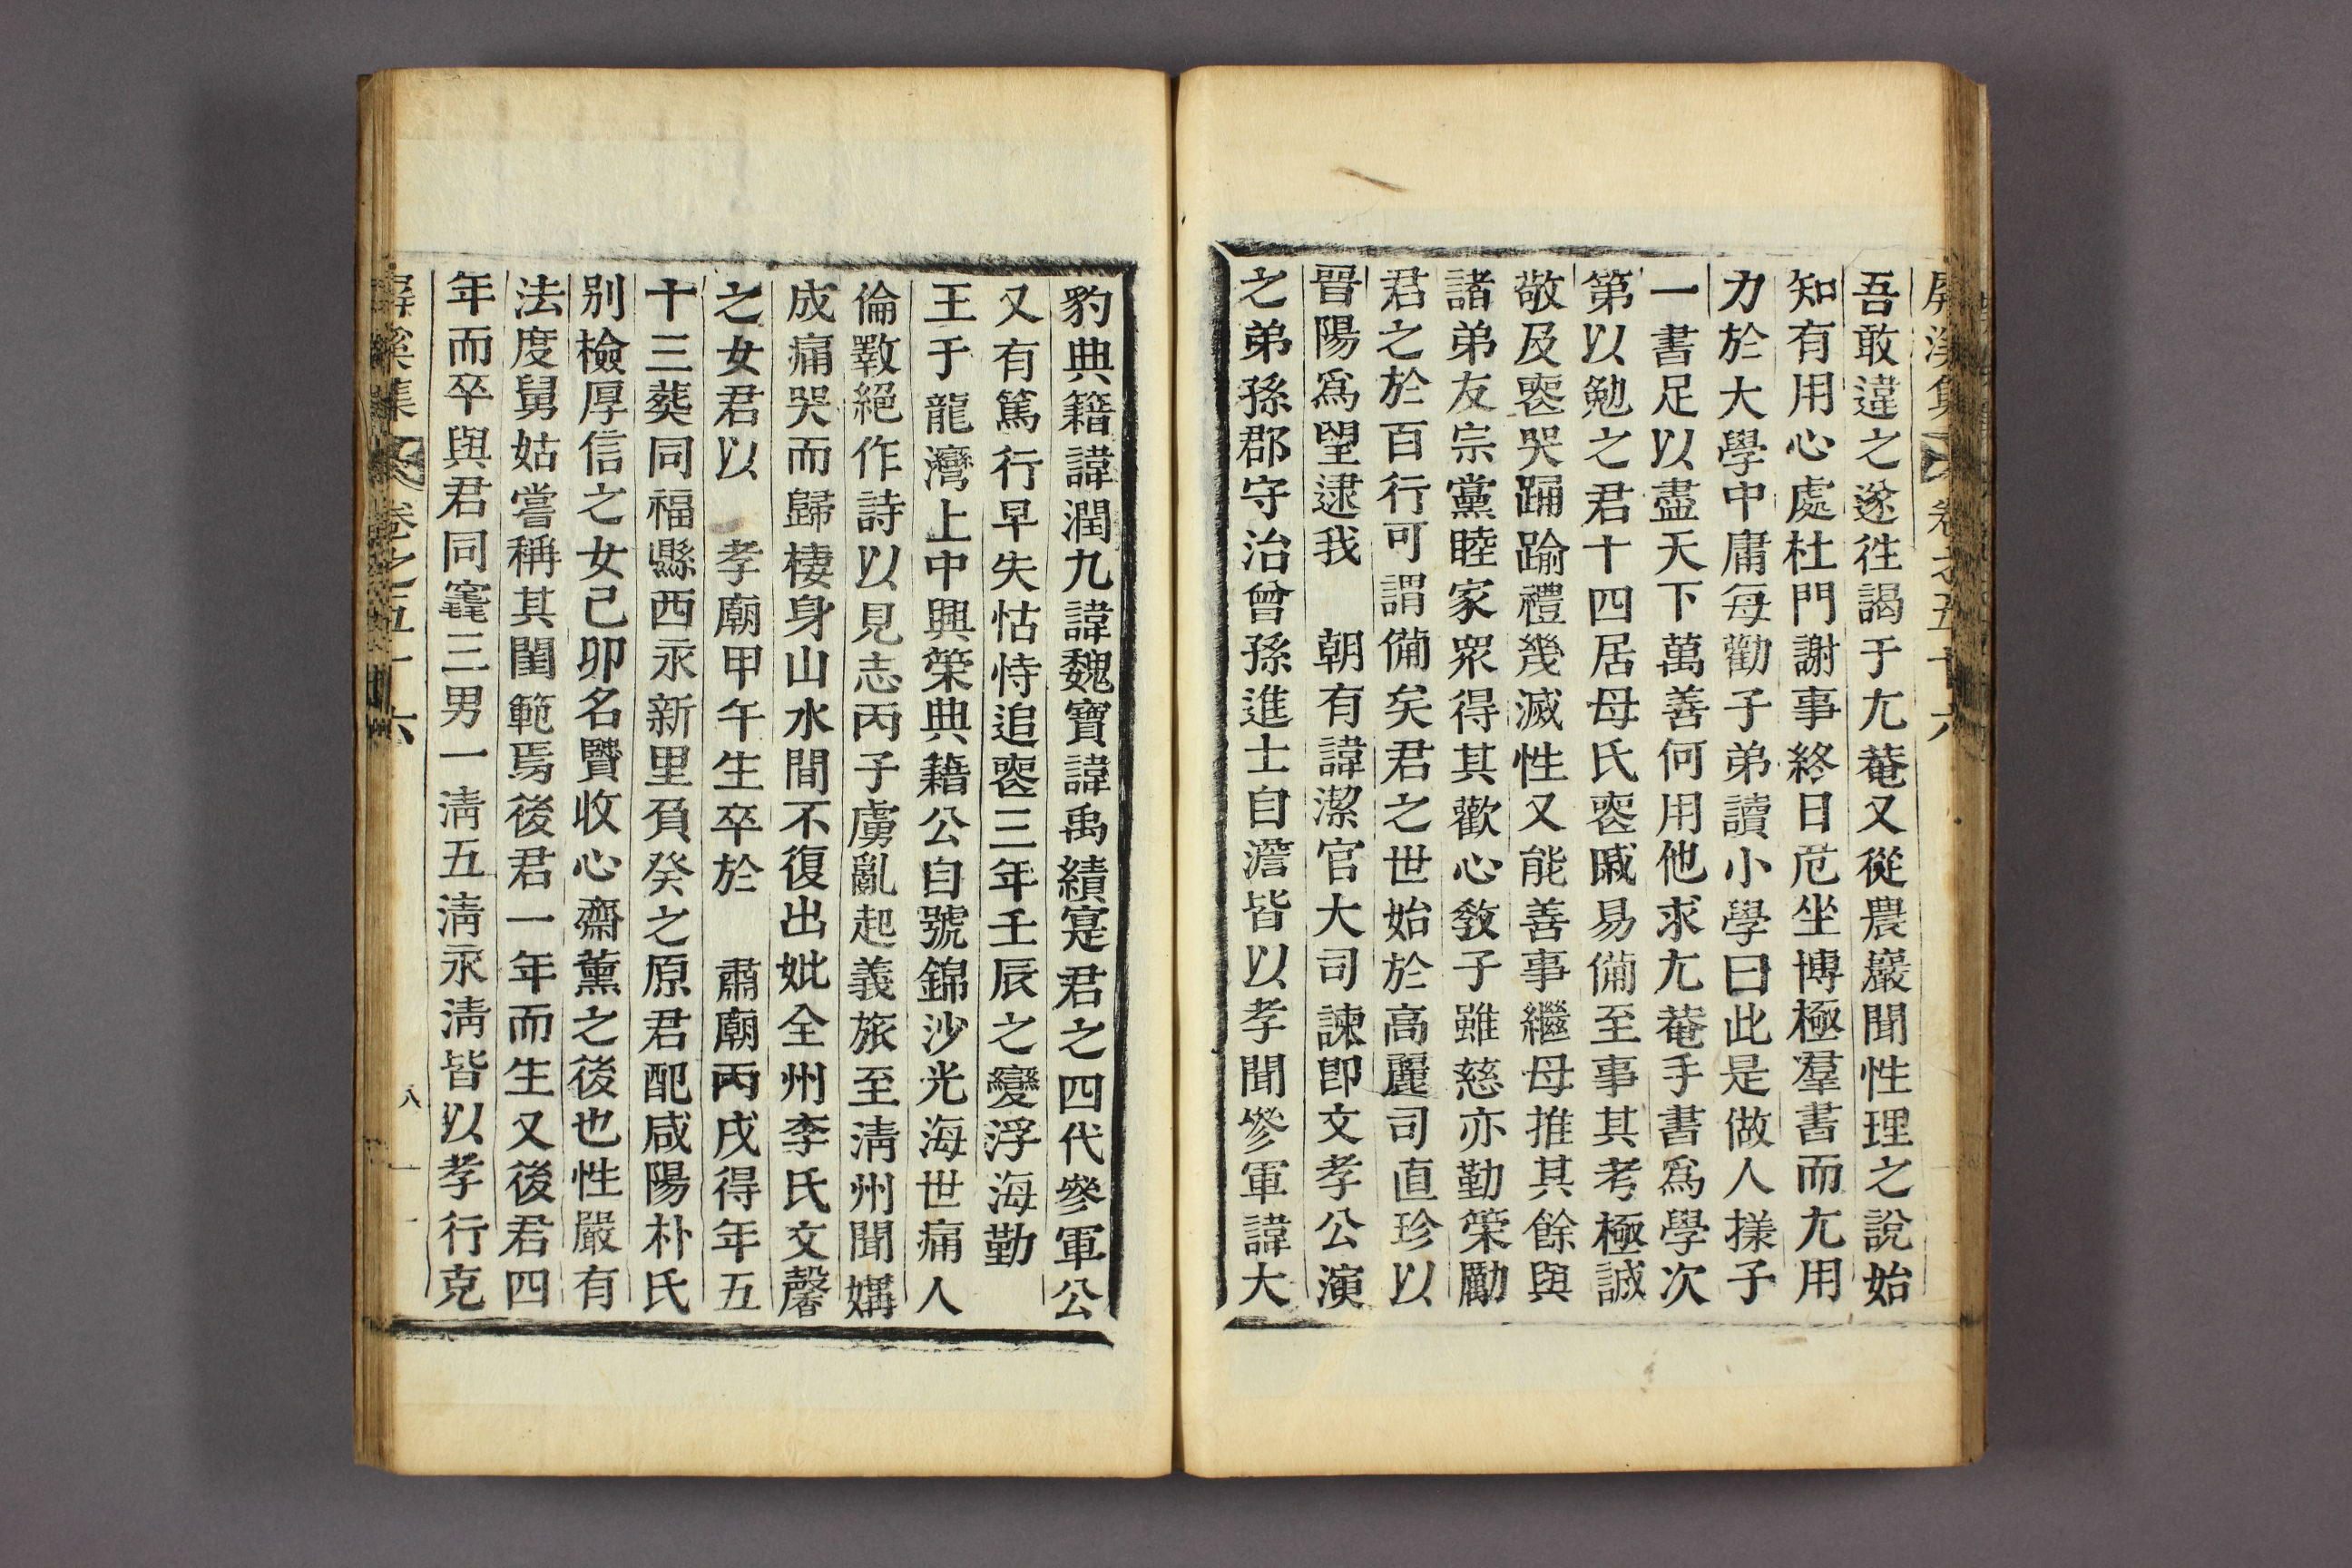 屛溪集 卷之五十六
吾敢違之遂徃謁于尤菴又從農巖聞性理之說始
知有用心處杜門謝事終日危坐博極羣書而尤用
力於大學中庸每勸子弟讀小學曰此是做人㨾子
一書足以盡天下萬善何用他求尤菴手書爲學次
第以勉之君十四居母氏喪戚易備至事其考極誠
敬及喪哭踊踰禮幾滅性又能善事繼母推其餘與
諸弟友宗黨睦家衆得其歡心敎子雖慈亦勤策勵
君之於百行可謂備矣君之世始於高麗司直珍以
晉陽爲望逮我 朝有諱潔官大司諫卽文孝公演
之弟孫郡守治曾孫進士自澹皆以孝聞參軍諱大
豹典籍諱潤九諱魏寶諱禹績寔君之四代參軍公
又有篤行早失怙恃追喪三年壬辰之變浮海勤
王于龍灣上中興策典籍公自號錦沙光海世痛人
倫斁絕作詩以見志丙子虜亂起義旅至淸州聞媾
成痛哭而歸棲身山水間不復出妣全州李氏文馨
之女君以 孝廟甲午生卒於 肅廟丙戌得年五
十三葬同福縣西永新里負癸之原君配咸陽朴氏
別檢厚信之女己卯名賢收心齋薰之後也性嚴有
法度舅姑嘗稱其閨範焉後君一年而生又後君四
年而卒與君同窆三男一淸五淸永淸皆以孝行克
屛溪集 卷之五十六 八